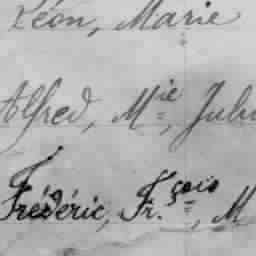 Léon, Marie
Alfred, Mie, Jule
Frédéric, Fr.çois, M